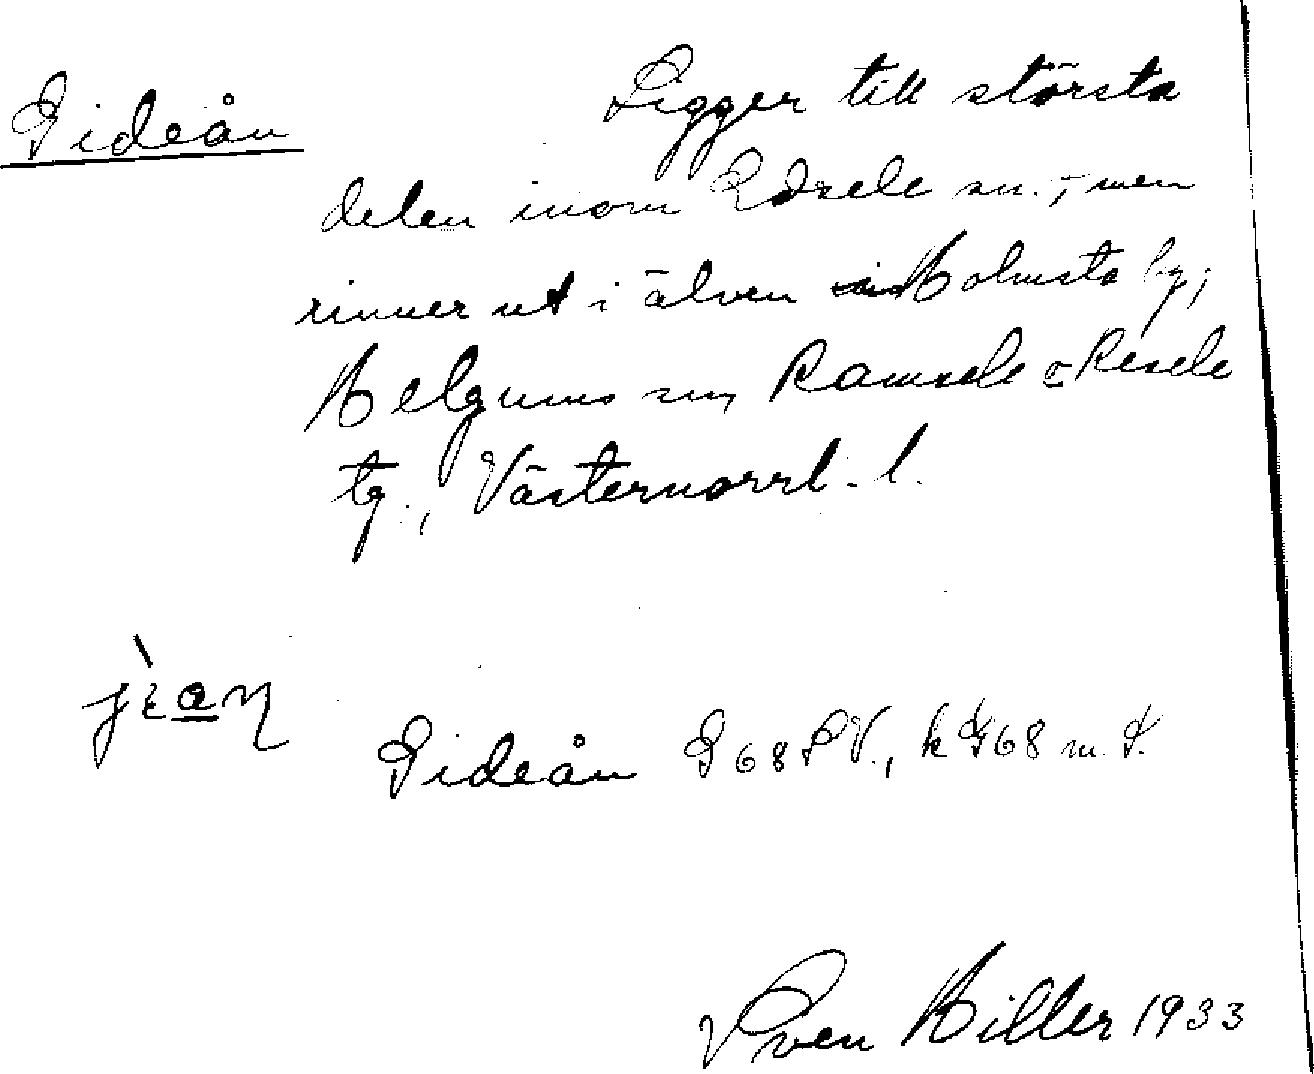 Gideån Ligger till största
delen inom Edsele sn., men
rinner ut i älven Holmsta by,
Helgums sn, Ramsele o Resele
tg., Västernorrl. l.
Gideån G68 SV., k G68 m. S.
Sven Hiller 1933